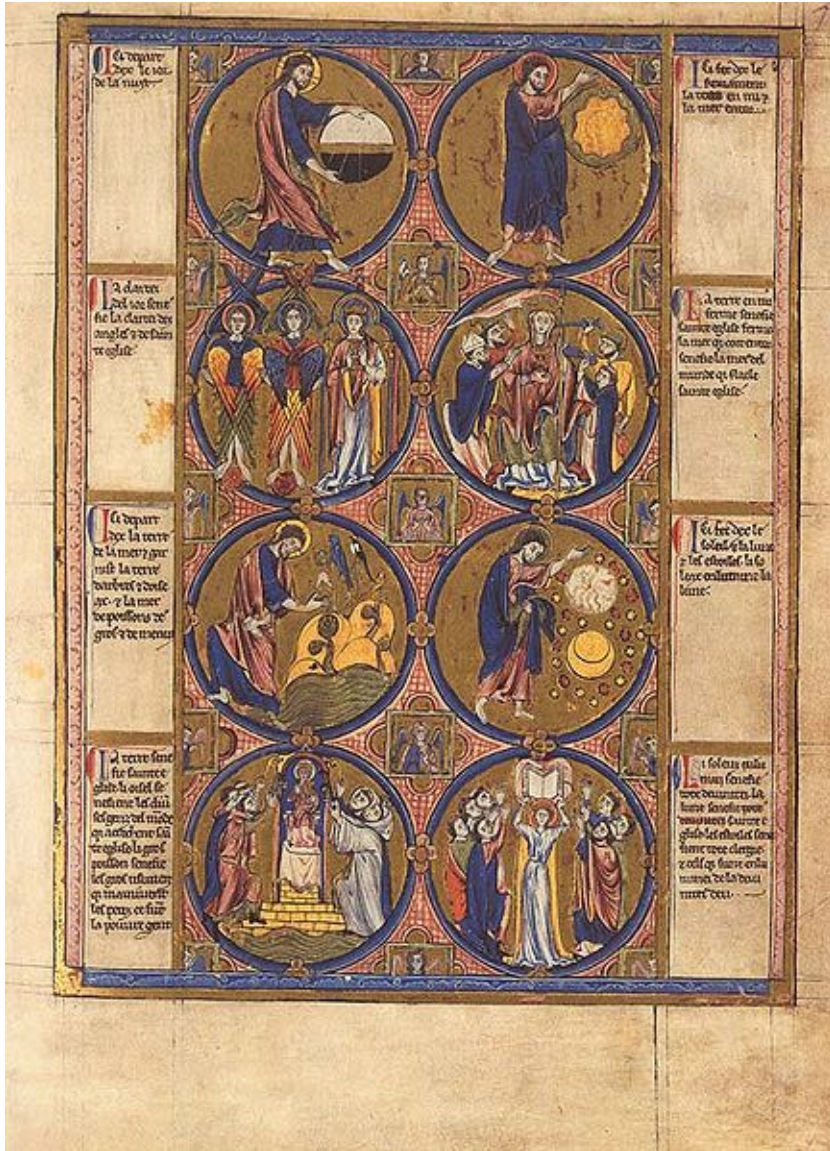 Ci depart
dex le ior
de la nuyt
La clartei
del ior sene
fie la clartei des
angles & de sain
te eglise
Ci depart
dex la terre
de la mer & gar
nist la terre
darbres & doise
& la mer
de poissons de
gros & de menus
La terre sene
fie sainte e
glise li oisel se
nefient les
ses genz del
te eglise li gros
poisson senefie
les gros
qi
les petiz ce
la poure gent
Ci fet dex le
firmament
la terre en mi &
la mer entor
La terre en mi
ferme senefie
sainte eglise ferme
la mer qi cort entor
senefie la mer del
munde qi flaele
sainte eglise
Ci fet dex le
soleil & la lune
& les estoilles li so
lex enlumine la
lune
Li soleux enlu
senefie
tote deuinitei. La
lune senefie tote
sainte e
glise les estoiles sene
fient tote clergie
& cels qi furent enlu
minei de la deui
nitei deu